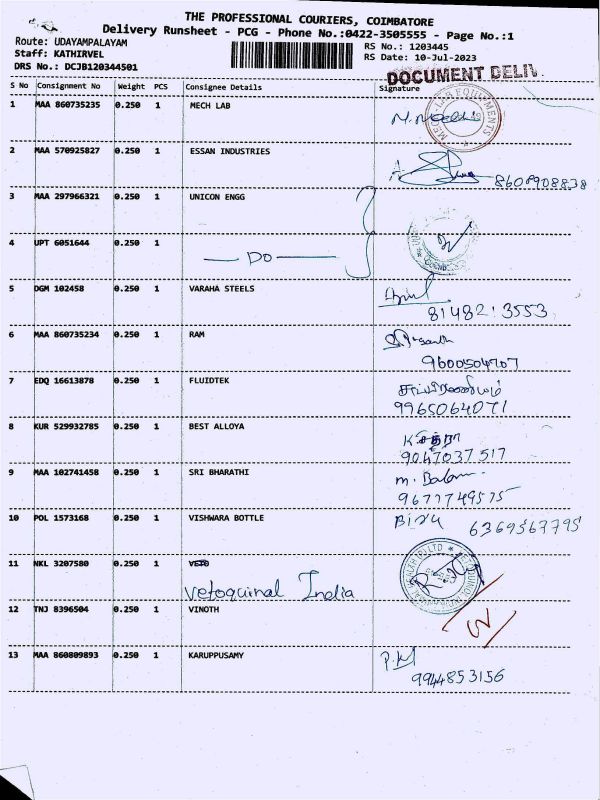 THE PROFESSIONAL COURIERS, COIMBATORE
Delivery Runsheet - PCG - Phone No.:0422-3505555 - Page No.:1
Route: UDAYAMPALAYAM
RS No.: 1203445
Staff: KATHIRVEL
RS Date: 10-Jul-2023
DRS No.: DCJB120344501
DOCUMENT DELIV
S No Consignment No Weight PCS Consignee Details Signature
1 MAA 860735235 0.250 1 MECH LAB
MECH-LAB EQUIPMENTS
2 MAA 570925827 0.250 1 ESSAN INDUSTRIES
8608908838
3 MAA 297966321 0.250 1 UNICON ENGG
4 UPT 6051644 0.250 1
— DO —
5 DGM 102458 0.250 1 VARAHA STEELS
81482 13553
6 MAA 860735234 0.250 1 RAM
9600504707
7 EDQ 16613878 0.250 1 FLUIDTEK
9965064071
8 KUR 529932785 0.250 1 BEST ALLOYA
9047037517
9 MAA 102741458 0.250 1 SRI BHARATHI
9677749575
10 POL 1573168 0.250 1 VISHWARA BOTTLE
6369567795
11 NKL 3207580 0.250 1
Vetoquinal India
12 TNJ 8396504 0.250 1 VINOTH
13 MAA 860809893 0.250 1 KARUPPUSAMY
P.M
9944853156